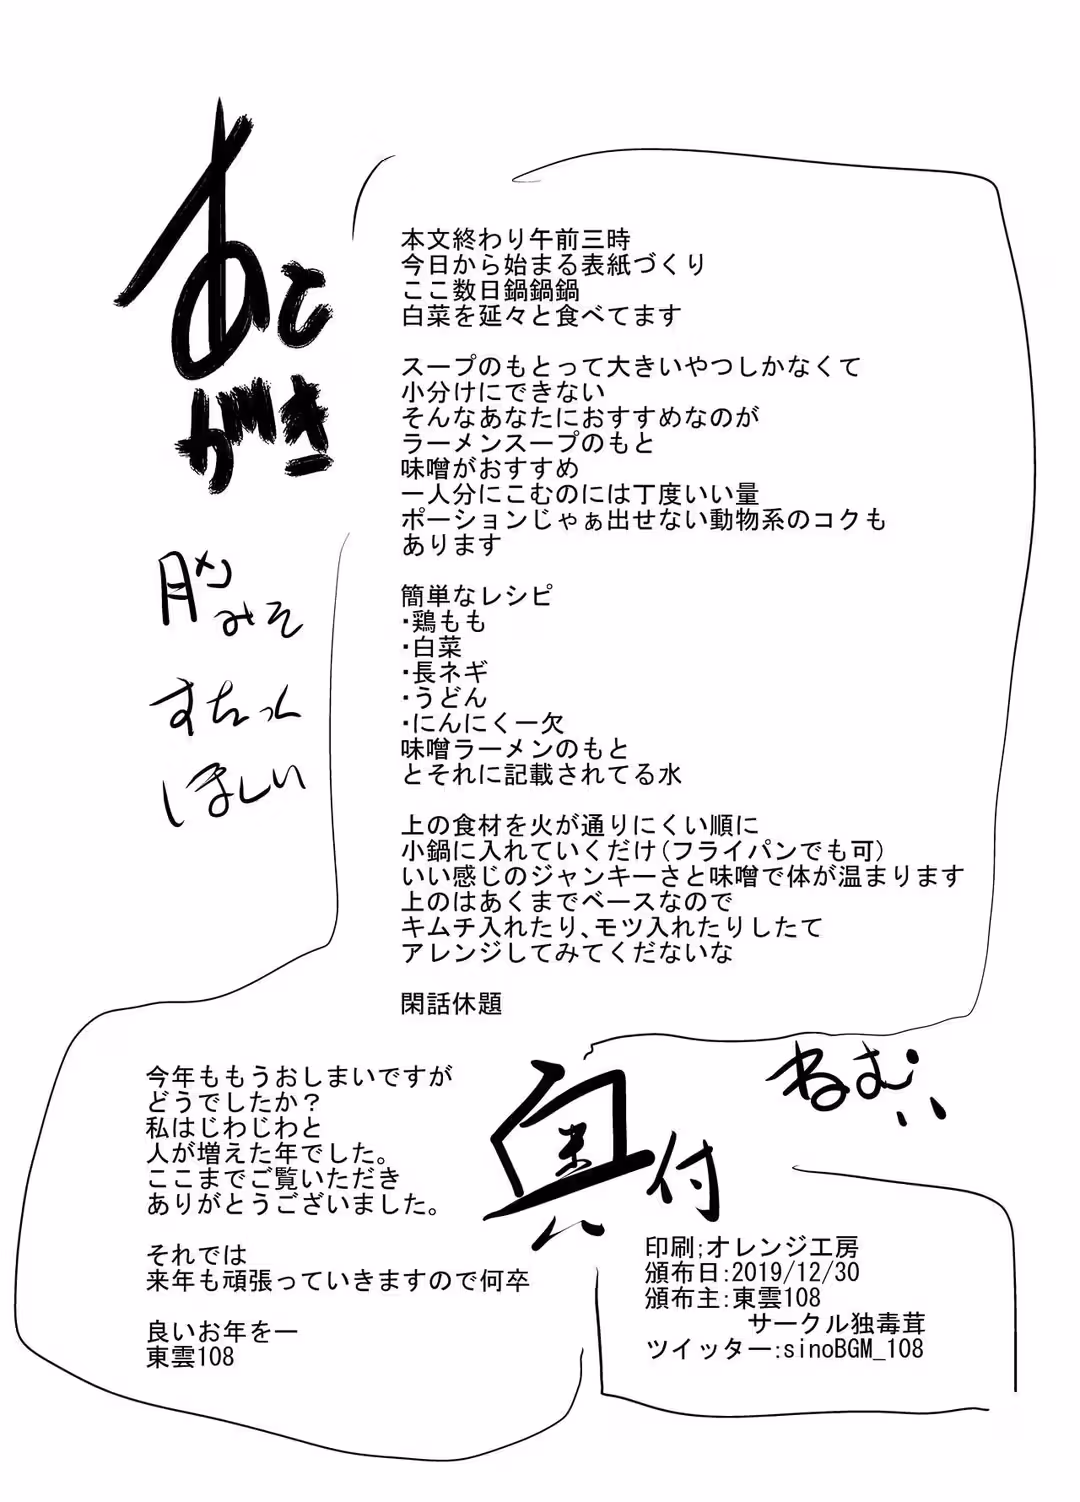 あとがき
脳みそ
すちっく
ほしい
本文終わり午前三時
今日から始まる表紙づくり
ここ数日鍋鍋鍋
白菜を延々と食べてます
スープのもとって大きいやつしかなくて
小分けにできない
そんなあなたにおすすめなのが
ラーメンスープのもと
味噌がおすすめ
一人分にこむのには丁度いい量
ポーションじゃぁ出せない動物系のコクも
あります
簡単なレシピ
・鶏もも
・白菜
・長ネギ
・うどん
・にんにく一欠
味噌ラーメンのもと
とそれに記載されてる水
上の食材を火が通りにくい順に
小鍋に入れていくだけ(フライパンでも可)
いい感じのジャンキーさと味噌で体が温まります
上のはあくまでベースなので
キムチ入れたり、モツ入れたりしたて
アレンジしてみてくだないな
閑話休題
ねむい
今年ももうおしまいですが
どうでしたか？
私はじわじわと
人が増えた年でした。
ここまでご覧いただき
ありがとうございました。
それでは
来年も頑張っていきますので何卒
良いお年をー
東雲108
奥付
印刷;オレンジ工房
頒布日:2019/12/30
頒布主:東雲108
サークル独毒茸
ツイッター:sinoBGM_108